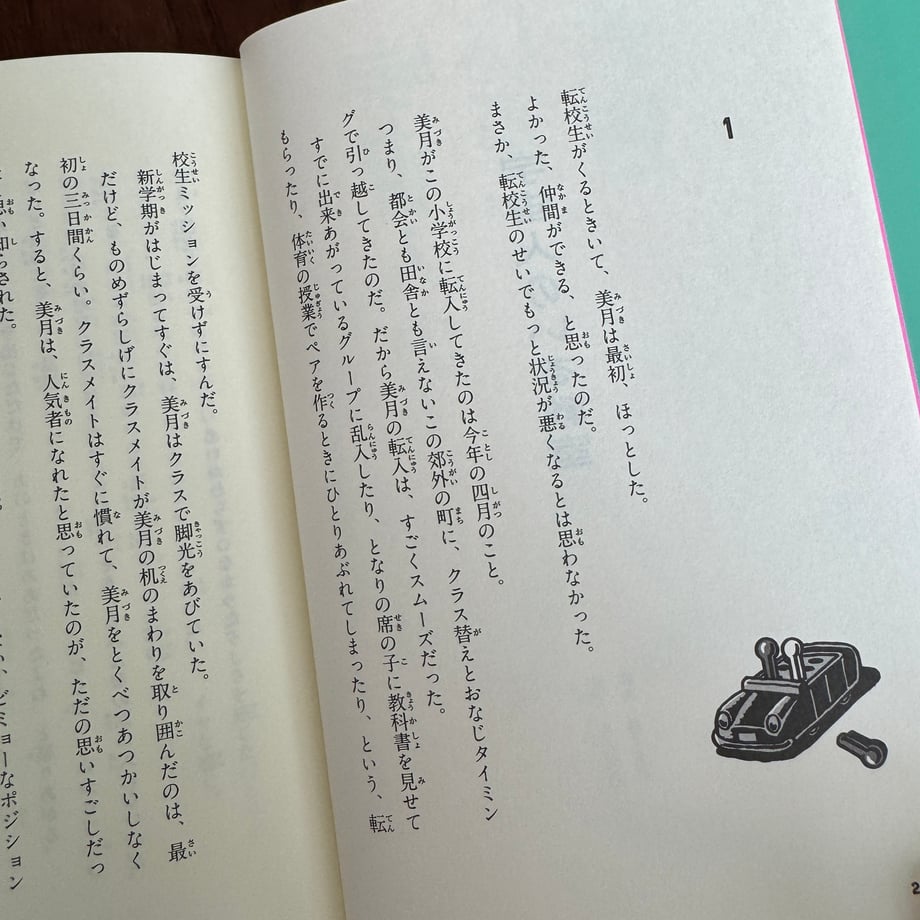 1
転校生がくるときいて、美月は最初、ほっとした。
よかった、仲間ができる、と思ったのだ。
まさか、転校生のせいでもっと状況が悪くなるとは思わなかった。
美月がこの小学校に転入してきたのは今年の四月のこと。
つまり、都会とも田舎とも言えないこの郊外の町に、クラス替えとおなじタイミン
グで引っ越してきたのだ。だから美月の転入は、すごくスムーズだった。
すでに出来あがっているグループに乱入したり、となりの席の子に教科書を見せて
もらったり、体育の授業でペアを作るときにひとりあぶれてしまったり、という、転
校生ミッションを受けずにすんだ。
新学期がはじまってすぐは、美月はクラスで脚光をあびていた。
だけど、ものめずらしげにクラスメイトが美月の机のまわりを取り囲んだのは、最
初の三日間くらい。クラスメイトはすぐに慣れて、美月をとくべつあつかいしなく
なった。すると、美月は、人気者になれたと思っていたのが、ただの思いすごしだっ
思い知らされた。
ビミョーなポジション
2